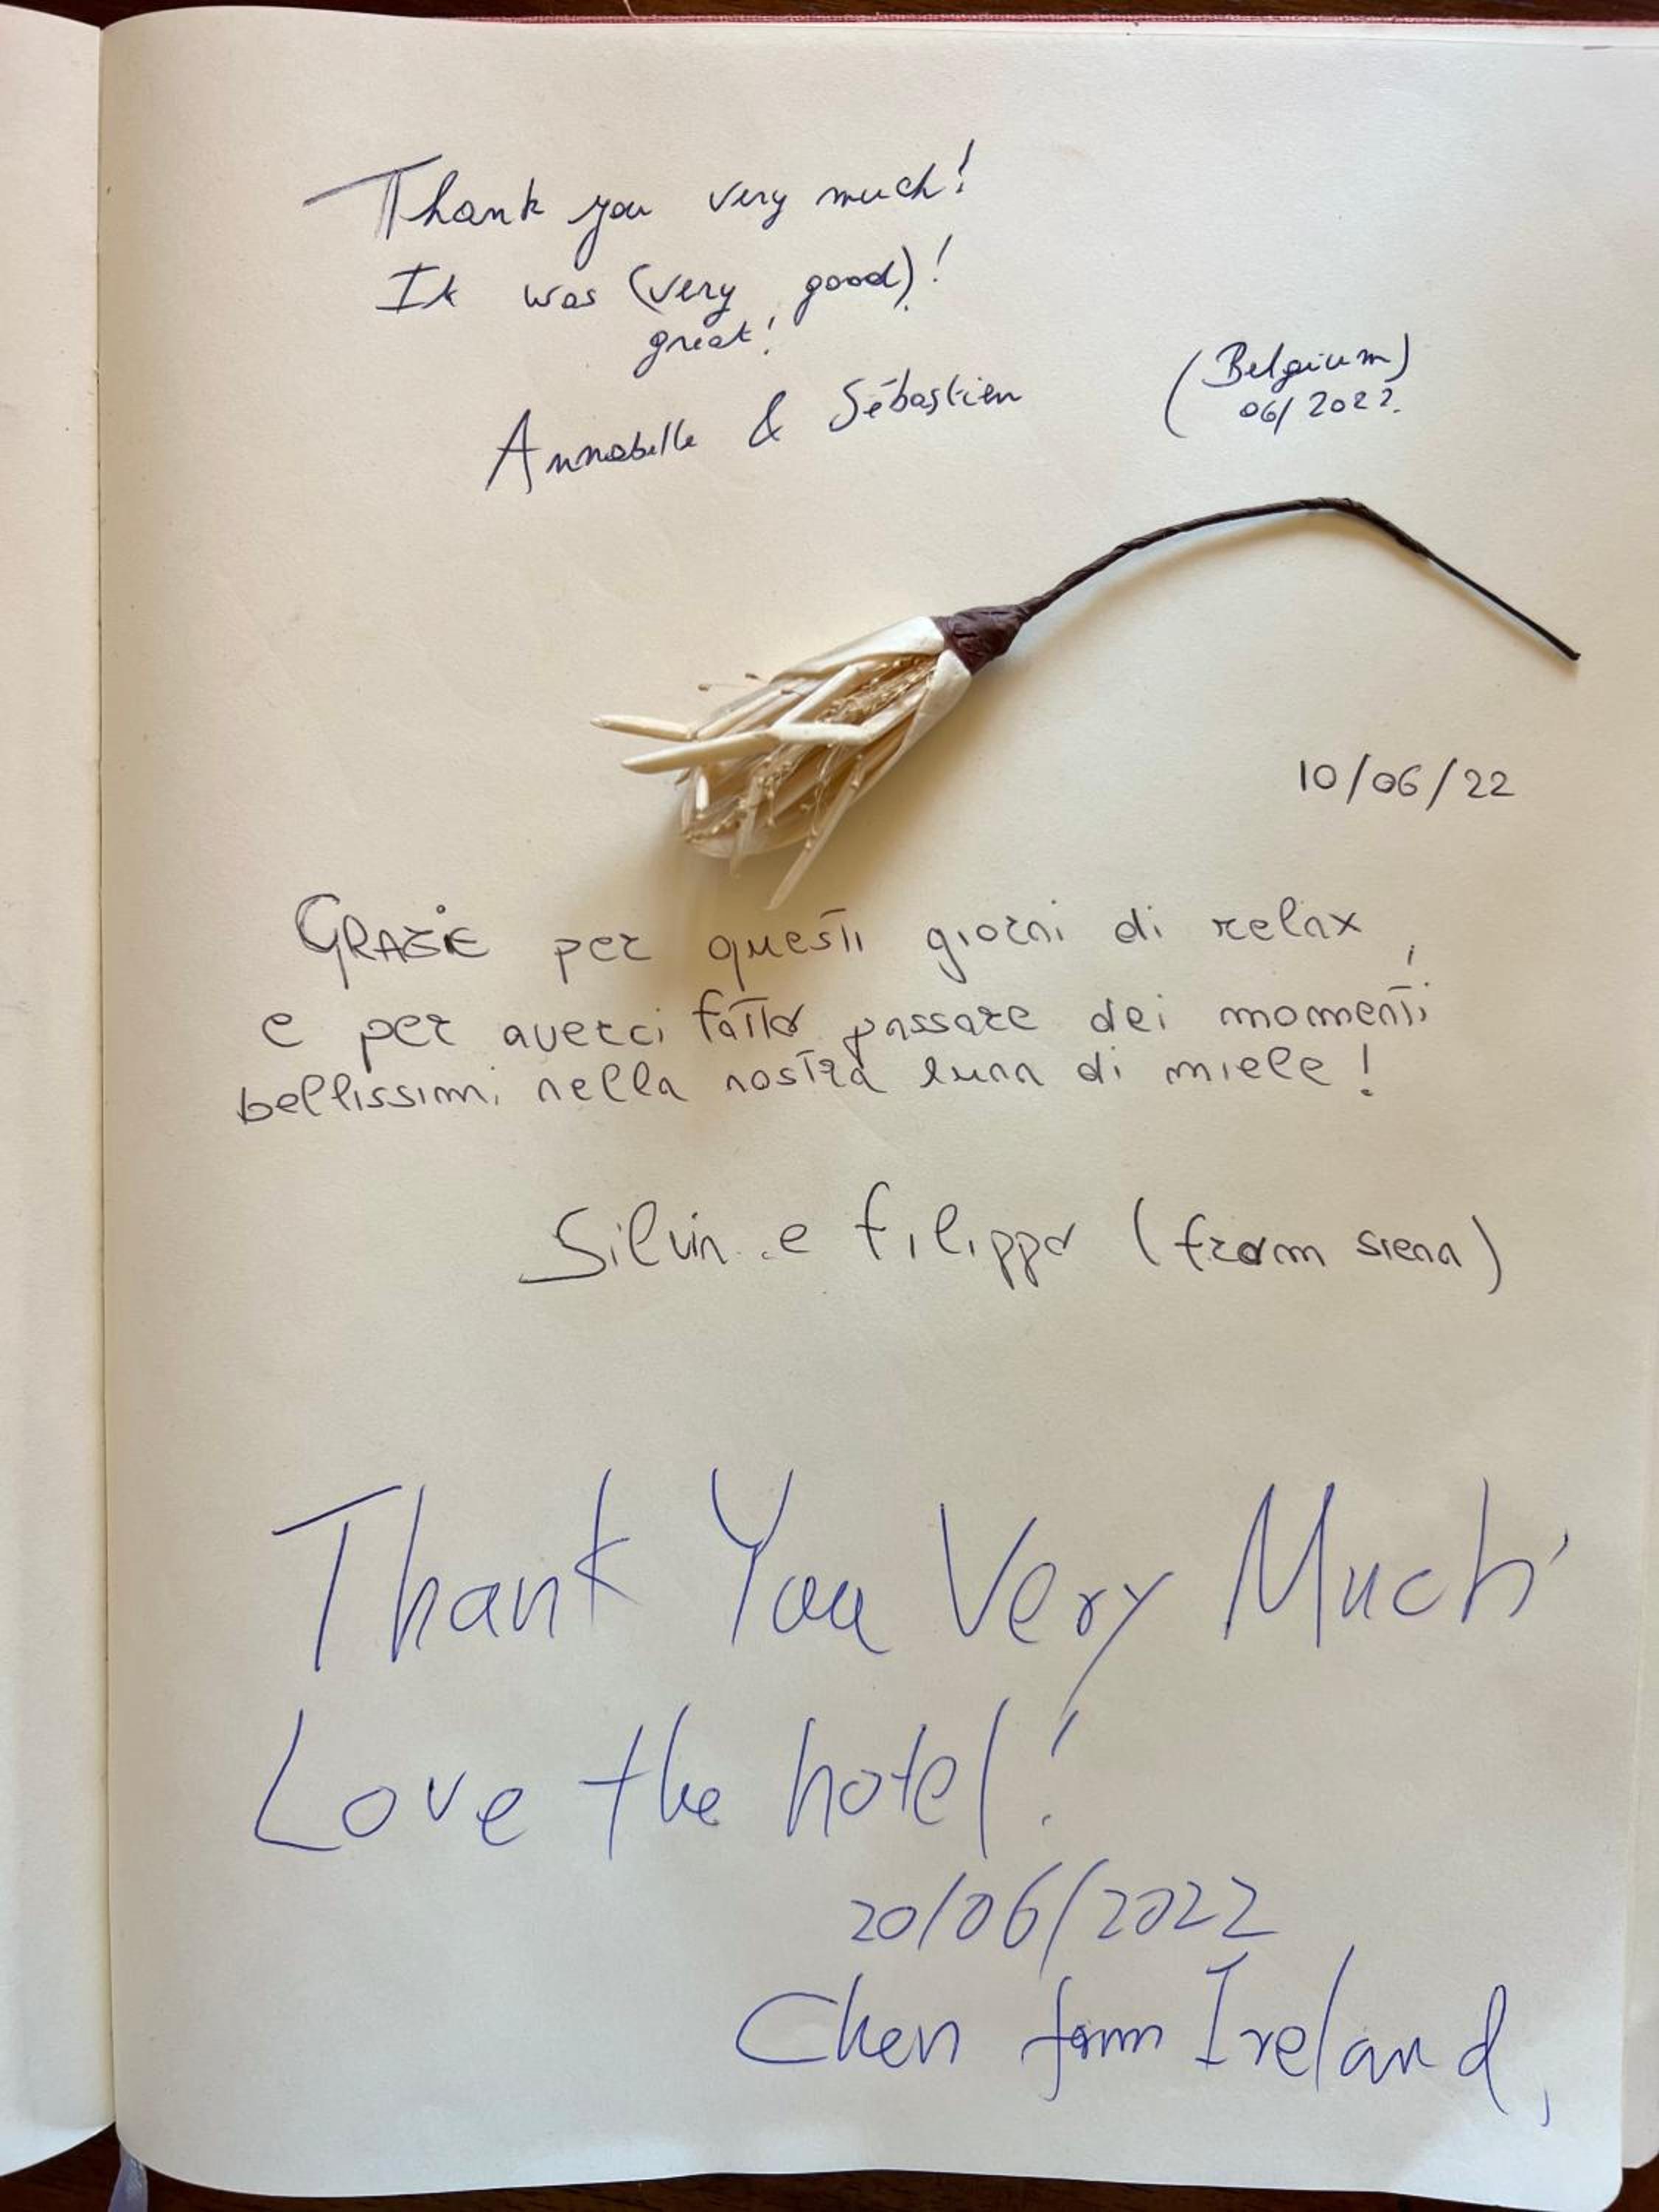 Thank you very much!
It was (very good)!
great!
Annabelle & Sébastien
(Belgium)
06/2022.
10/06/22
GRAZIE per questi giorni di relax,
e per averci fatto passare dei momenti
bellissimi nella nostra luna di miele!
Silvia e Filippo (from siena)
Thank You Very Much
Love the hotel!
20/06/2022
Chen from Ireland,